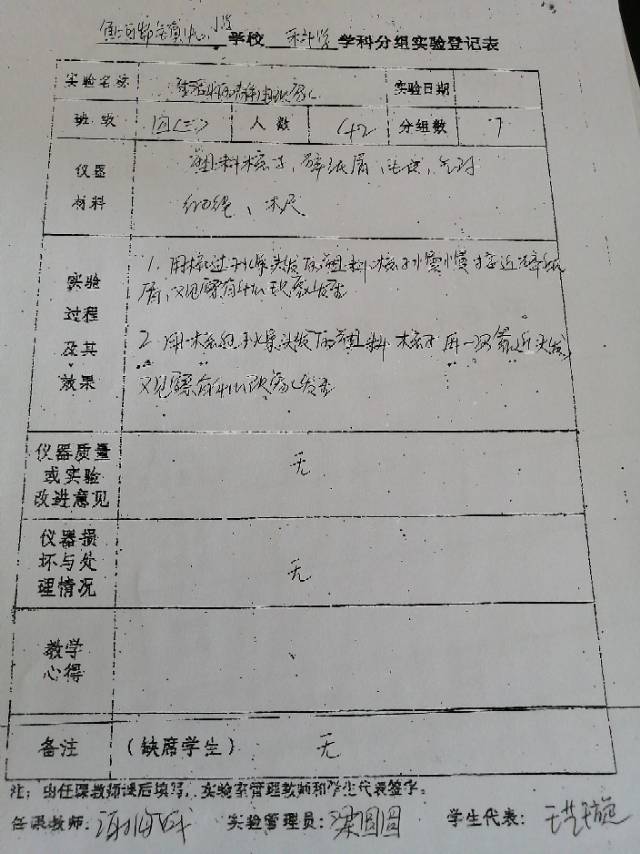 学校 科学 学科分组实验登记表
实验名称 生活中的静电现象 实验日期
班级 四(三) 人数 42 分组数 7
仪器 塑料梳子、碎纸屑、毛皮、气球
材料 红绳、木尺
实验 1. 用梳过干燥头发的塑料梳子慢慢接近碎纸
过程 屑,观察有什么现象发生
及其 2. 用梳过干燥头发的塑料梳子再一次靠近头发,
效果 观察有什么现象发生
仪器质量
或实验 无
改进意见
仪器损
坏与处 无
理情况
教学
心得
备注 (缺席学生) 无
注:由任课教师课后填写,实验室管理教师和学生代表签字。
任课教师: 实验管理员:梁圆圆 学生代表: